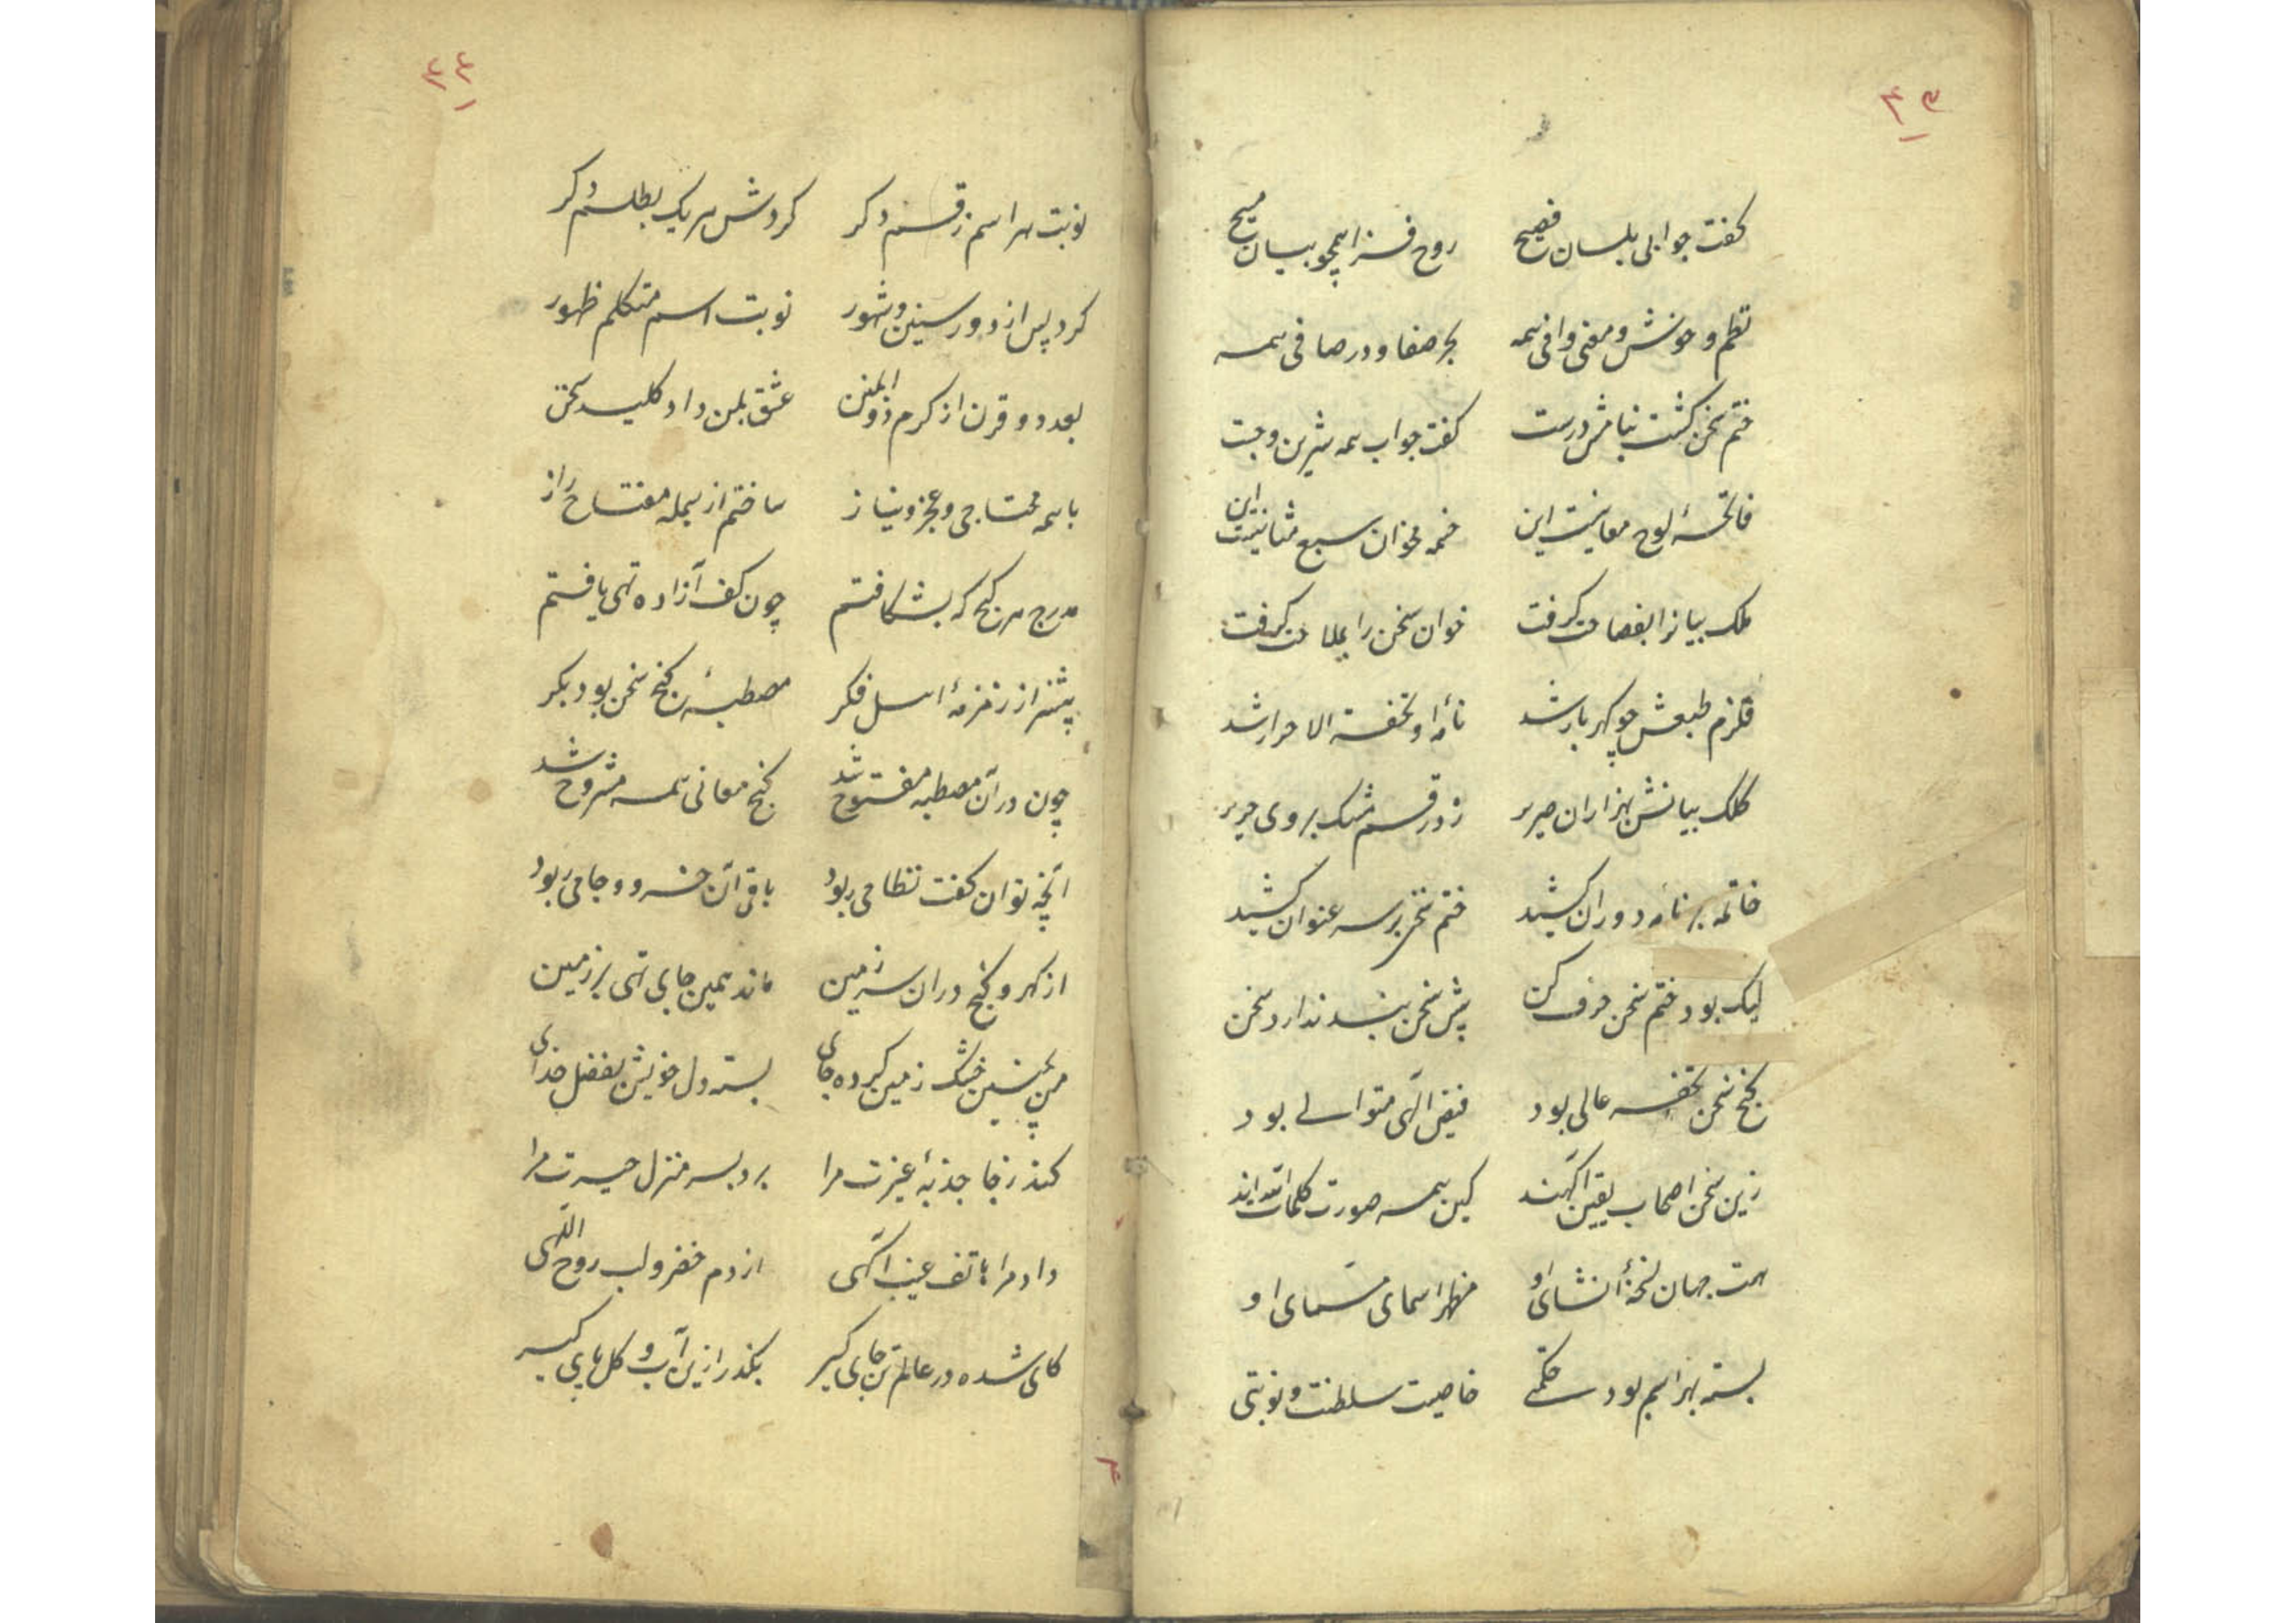 ۴۳
گفت جوابی بلسان فصیح روح فزا همچو بیان مسیح
نظم خوش و معنی وافی همه بحر صفا و در صافی همه
ختم سخن گشت بنامش درست گفت جواب همه شیرین و چست
فاتحهٔ لوح معانیست این خمسه مخوان سبع مثانیست این
ملک بیانرا بفصاحت گرفت خوان سخن را بملاحت گرفت
قلزم طبعش چو گهربار شد نامهٔ او تحفة الاحرار شد
کلک بیانش بهزاران صریر زد رقم مشک بروی حریر
خاتمه بر نامه دوران کشید ختم سخن بر سر عنوان کشید
لیک بود ختم سخن حرف کن پیش سخن بند ندارد سخن
گنج سخن تحفه عالی بود فیض الهی متوالی بود
زین سخن اصحاب یقین آگهند کین همه صورت کلمات اللهند
هست جهان نسخهٔ انشای او مظهر اسمای مسمای او
بسته بهر اسم بود حکمتی خاصیت سلطنت و نوبتی
۴۴
نوبت هر اسم ز قسم دگر گردش هر یک بطلسم دگر
کرد پس از دور سنین و شهور نوبت اسم متکلم ظهور
بعد دو قرن از کرم ذوالمنن عشق بمن داد کلید سخن
با همه محتاجی و عجز و نیاز ساختم از بسمله مفتاح راز
درج هر گنج که بشکافتم چون کف آزاده تهی یافتم
پیشتر از زمزمهٔ اهل فکر مصطبهٔ گنج سخن بود بکر
چون در آن مصطبه مفتوح شد گنج معانی همه مشروح شد
آنچه توان گفت نظامی ربود باقی آن خسرو و جامی ربود
از گهر و گنج در آن سرزمین ماند همین جای تهی بر زمین
من بچنین خشک زمین کرده جای بسته دل خویش بفضل خدای
کند ز جا جذبهٔ غیرت مرا برد بسر منزل حیرت مرا
داد مرا هاتف غیب آگهی از دم خضر و لب روح اللهی
کای شده در عالم تن جای گیر بگذر ازین آب و گل پای گیر